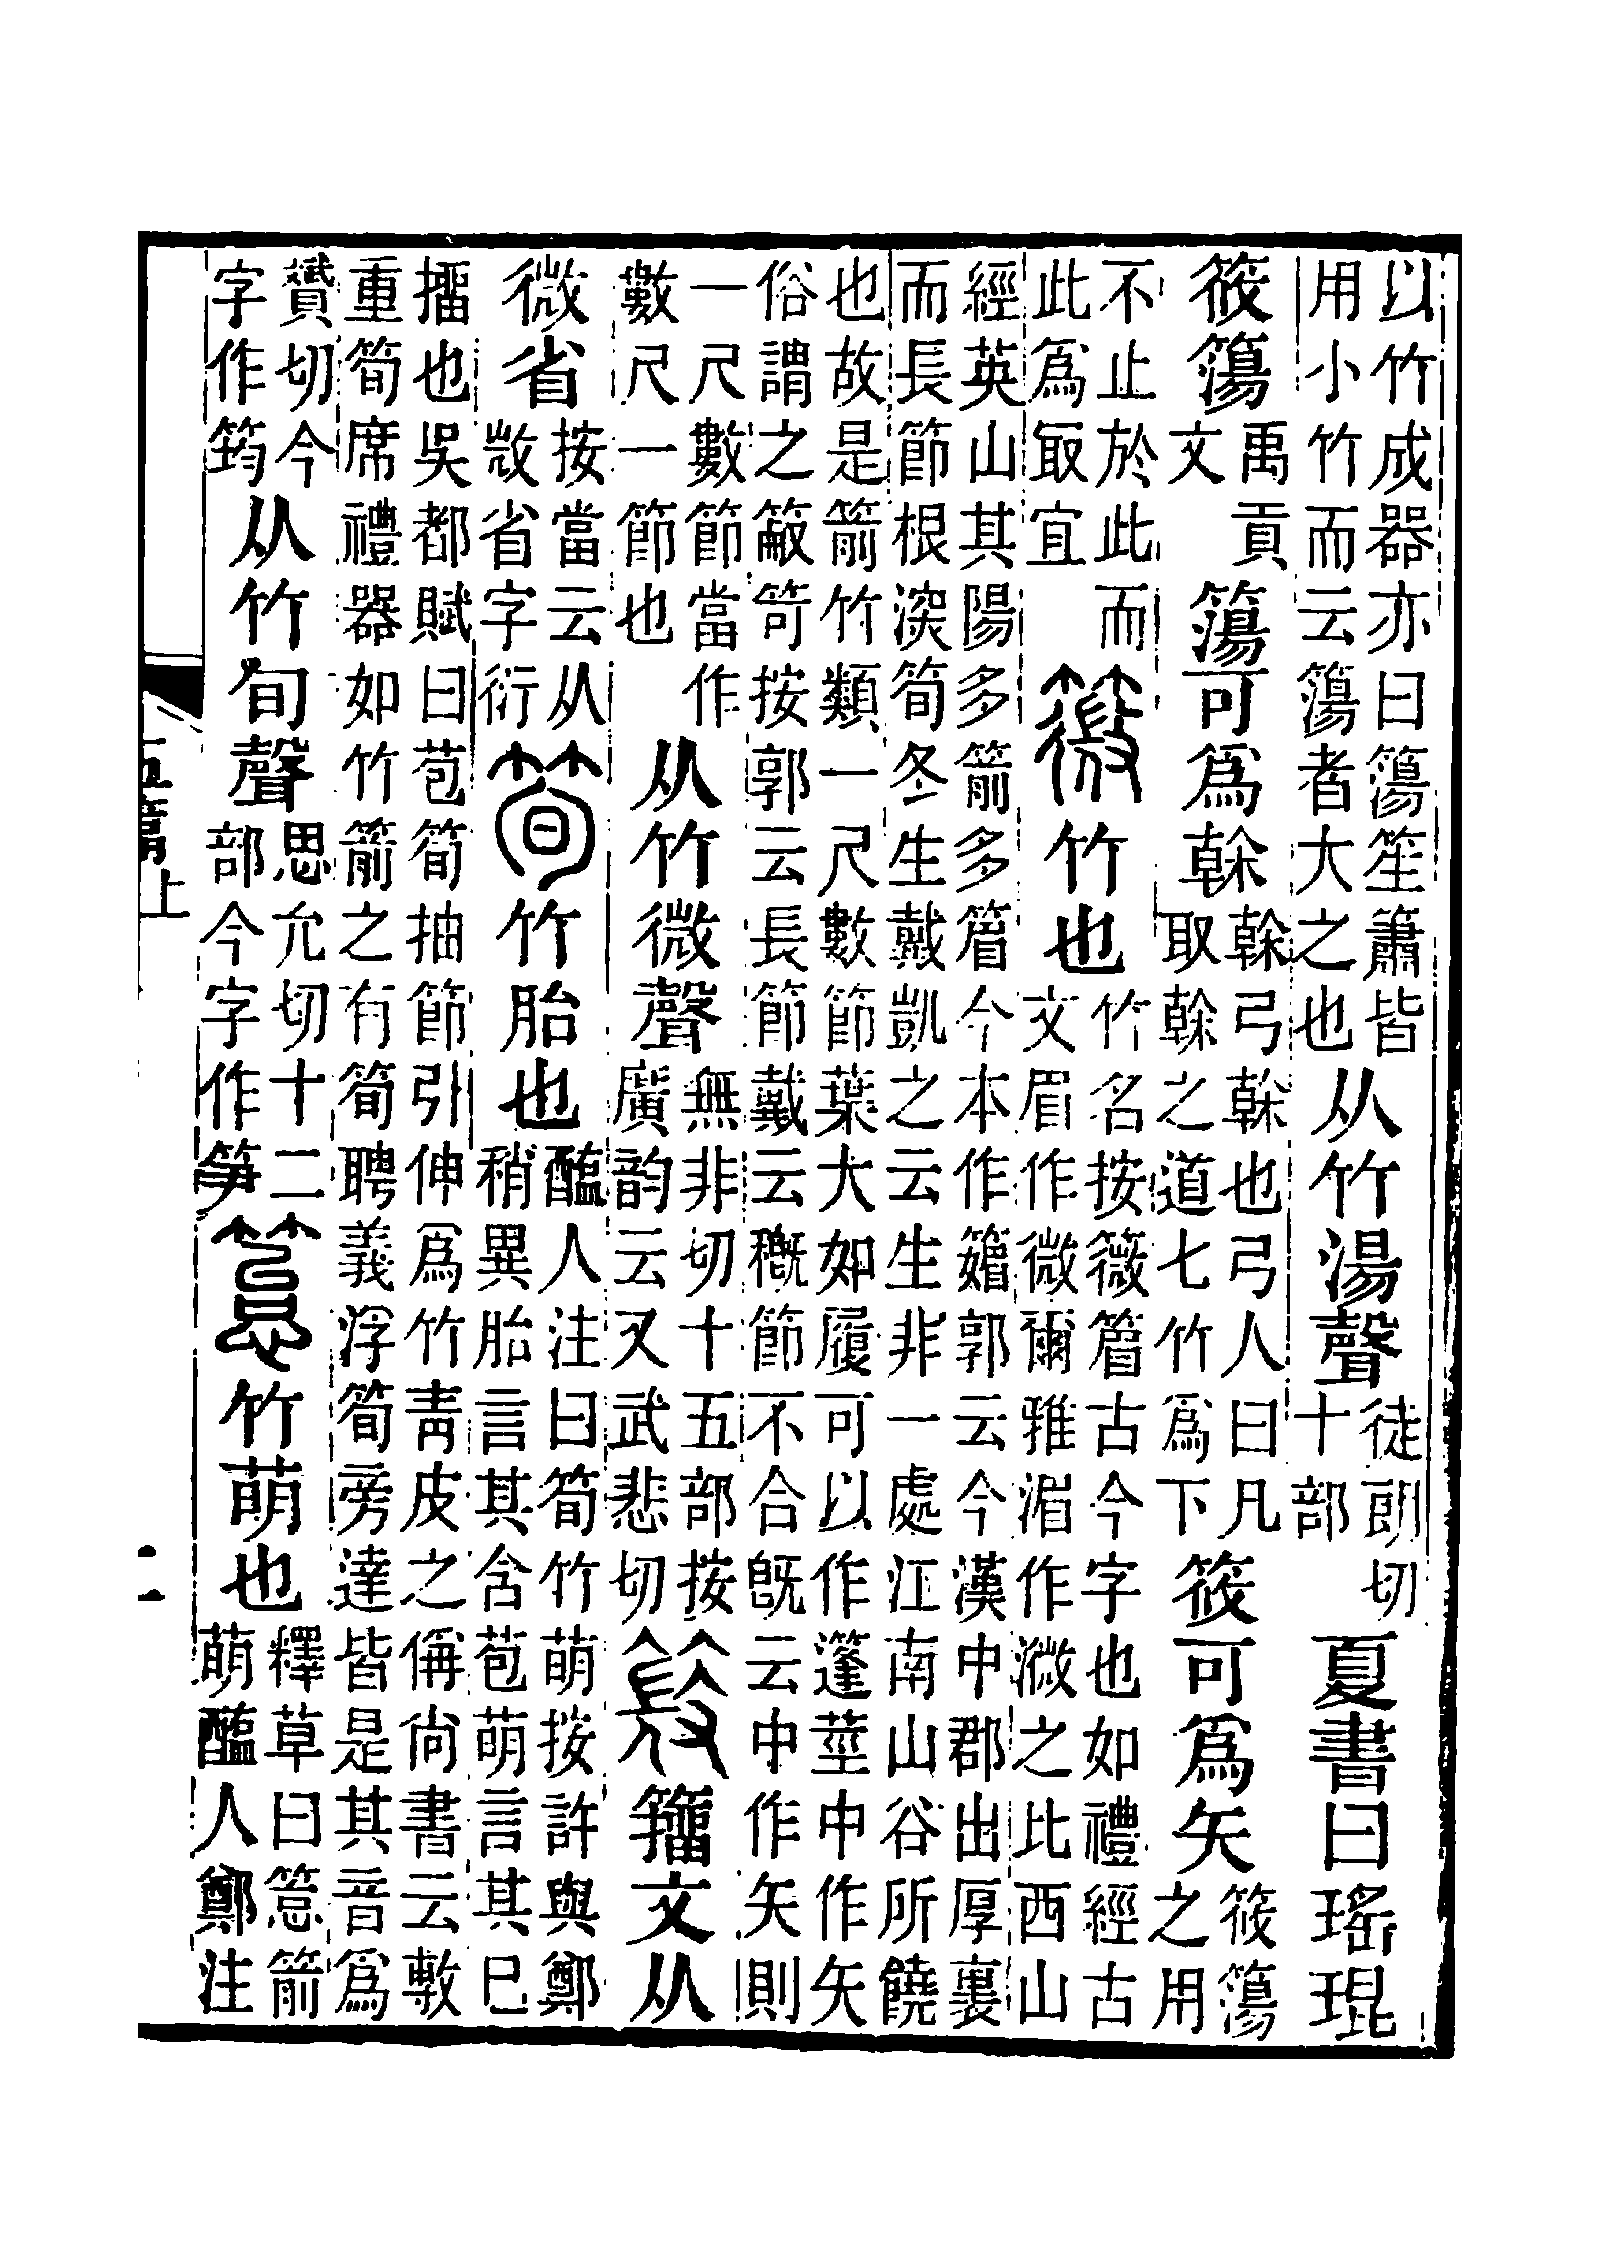 以竹成器亦曰簜笙簫皆用小竹而云簜者大之也从竹湯聲徒朗切十部夏書曰瑤琨
筱簜禹貢文簜可爲榦榦弓榦也弓人曰凡取榦之道七竹爲下筱可爲矢筱簜之用
不止於此而此爲冣宜䉠竹也竹名按䉠篃古今字也如禮經古文眉作微爾雅湄作溦之比西山
經英山其陽多箭多篃今本作䉋郭云今漢中郡出厚裏而長節根㴱筍冬生戴凱之云生非一處江南山谷所饒
也故是箭竹類一尺數節葉大如履可以作篷莖中作矢俗謂之笴按郭云長節戴云穊節不合旣云中作矢則
一尺數節當作數尺一節也从竹微聲無非切十五部按廣韵云又武悲切𥬰籒文从
微省按當云从𢼸省字衍筍竹胎也醢人注曰筍竹萌按許與鄭稍異胎言其含苞萌言其已
擂也吳都賦曰苞筍抽節引伸爲竹靑皮之偁尙書云敷重筍席禮器如竹箭之有筍聘義浮筍旁達皆是其音爲
贇切今字作筠从竹旬聲思允切十二部今字作笋䈚竹萌也釋草曰䈚箭萌醢人鄭注
五篇上
二